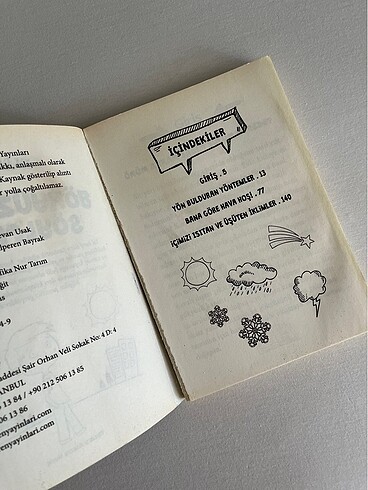 Yayınları
akkı, anlaşmalı olarak
Kaynak gösterilip alıntı
r yolla çoğaltılamaz.
rvan Usak
lperen Bayrak
fika Nur Tarım
ğit
as
4-9
addesi Şair Orhan Veli Sokak No: 4 D: 4
ANBUL
13 84 / +90 212 506 13 65
06 13 86
enyayinlari.com
nyayinlari.com
İÇİNDEKİLER
GİRİŞ . 5
YÖN BULDURAN YÖNTEMLER . 13
BANA GÖRE HAVA HOŞ! . 77
İÇİMİZİ ISITAN VE ÜŞÜTEN İKLİMLER . 140